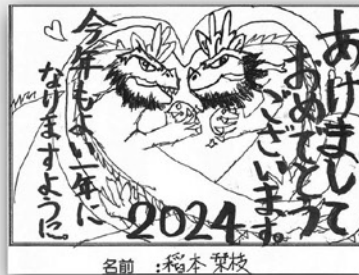 あけまして
おめでとう
ございます。
今年もよい一年に
なりますように。
2024
名前 :稲本 栞枝